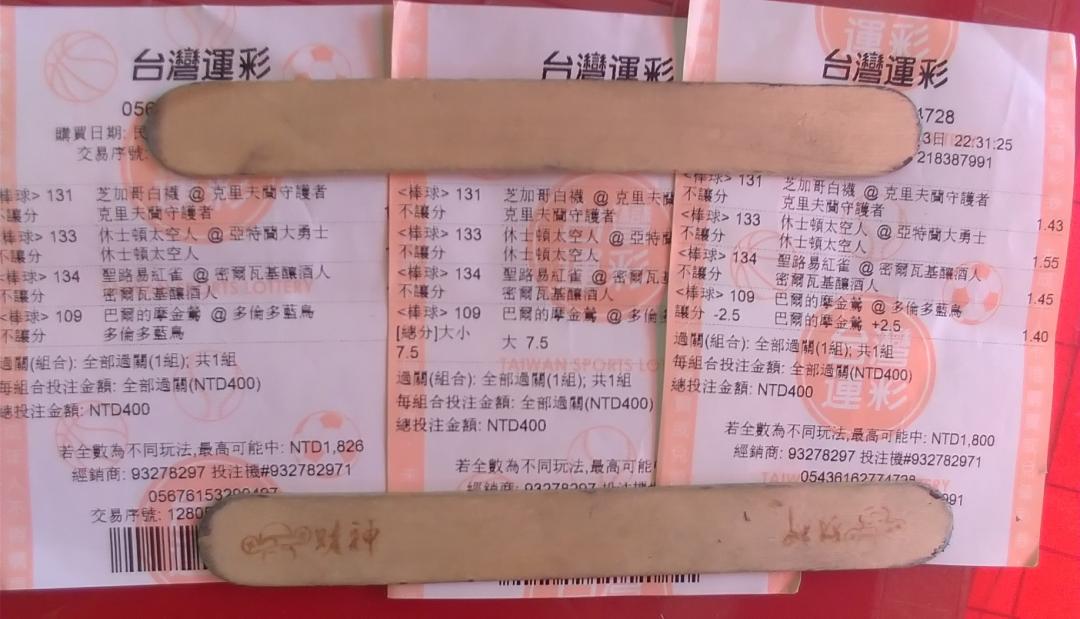 台灣運彩
056
購買日期: 民
交易序號:
<棒球> 131 芝加哥白襪 @ 克里夫蘭守護者
不讓分 克里夫蘭守護者
<棒球> 133 休士頓太空人 @ 亞特蘭大勇士
不讓分 休士頓太空人
<棒球> 134 聖路易紅雀 @ 密爾瓦基釀酒人
不讓分 密爾瓦基釀酒人
<棒球> 109 巴爾的摩金鶯 @ 多倫多藍鳥
不讓分 多倫多藍鳥
過關(組合): 全部過關(1組); 共1組
每組合投注金額: 全部過關(NTD400)
總投注金額: NTD400
若全數為不同玩法,最高可能中: NTD1,826
經銷商: 93278297 投注機#932782971
交易序號: 1280
台灣運彩
<棒球> 131 芝加哥白襪 @ 克里夫蘭
不讓分 克里夫蘭守護者
<棒球> 133 休士頓太空人 @ 亞特蘭
不讓分 休士頓太空人
<棒球> 134 聖路易紅雀 @ 密爾瓦基
不讓分 密爾瓦基釀酒人
<棒球> 109 巴爾的摩金鶯 @ 多倫多
[總分]大小 大 7.5
7.5
TAIWAN SPORTS LO
過關(組合): 全部過關(1組); 共1組
每組合投注金額: 全部過關(NTD400)
總投注金額: NTD400
若全數為不同玩法,最高可能
經銷商: 93278297 投注機
台灣運彩
4728
3日 22:31:25
218387991
<棒球> 131 芝加哥白襪 @ 克里夫蘭守護者
不讓分 克里夫蘭守護者 1.43
<棒球> 133 休士頓太空人 @ 亞特蘭大勇士
不讓分 休士頓太空人 1.55
<棒球> 134 聖路易紅雀 @ 密爾瓦基釀酒人
不讓分 密爾瓦基釀酒人 1.45
<棒球> 109 巴爾的摩金鶯 @ 多倫多藍鳥
讓分 -2.5 巴爾的摩金鶯 +2.5 1.40
過關(組合): 全部過關(1組); 共1組
每組合投注金額: 全部過關(NTD400)
總投注金額: NTD400
若全數為不同玩法,最高可能中: NTD1,800
經銷商: 93278297 投注機#932782971
991
賭神